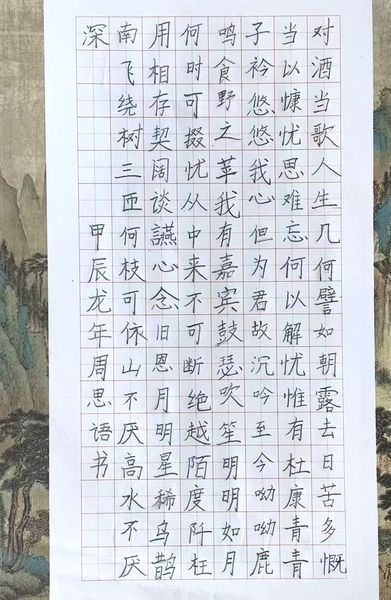 对酒当歌人生几何譬如朝露去日苦多慨
当以慷忧思难忘何以解忧惟有杜康青青
子衿悠悠我心但为君故沉吟至今呦呦鹿
鸣食野之苹我有嘉宾鼓瑟吹笙明明如月
何时可掇忧从中来不可断绝越陌度阡枉
用相存契阔谈讌心念旧恩月明星稀乌鹊
南飞绕树三匝何枝可依山不厌高水不厌
深 甲辰龙年周思语书